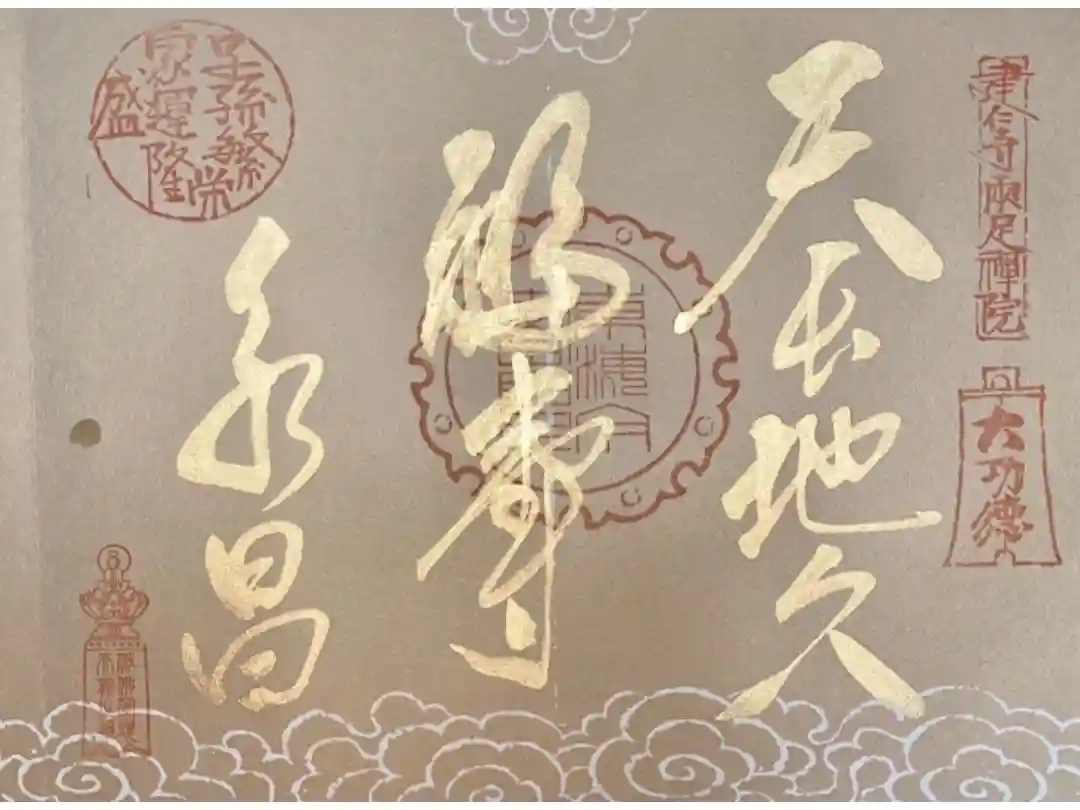 建仁寺兩足禅院
大功德
天長地久
福壽
永昌
子孫繁栄
家運隆盛